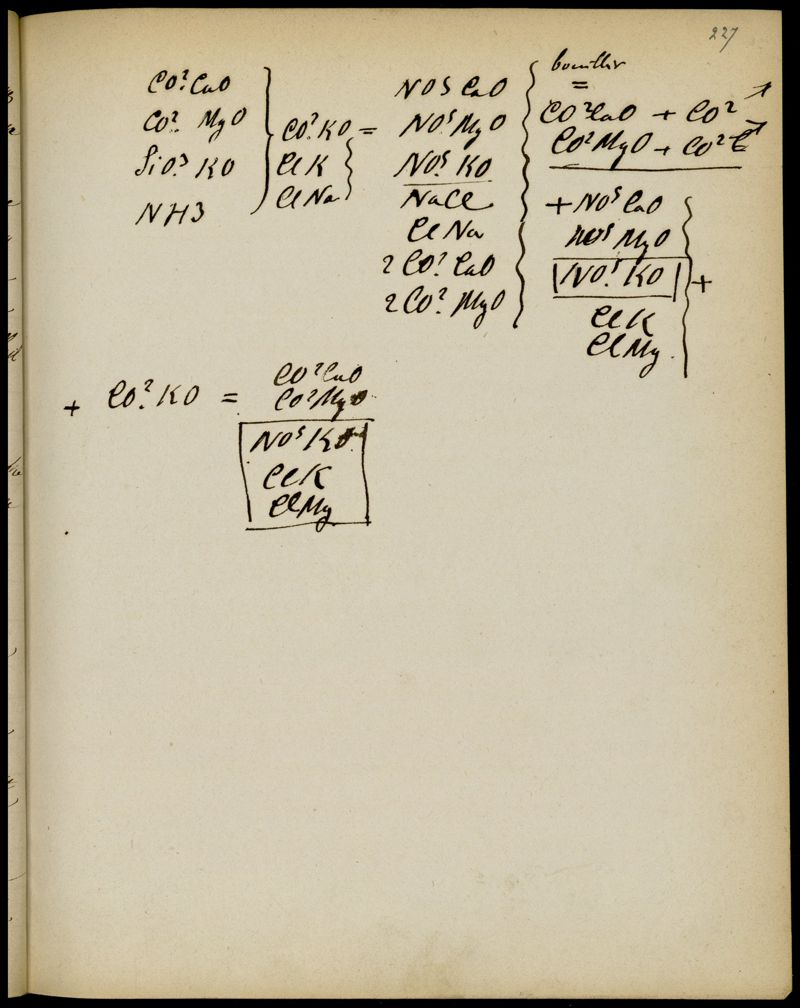 227
CO² CaO
CO² MgO
SiO³ KO
NH3
CO² KO =
ClK
ClNa
NO5 CaO
NO5 MgO
NO5 KO
NaCl
ClNa
2 CO² CaO
2 CO² MgO
bouillir
=
CO² CaO + CO²
CO² MgO + CO²
+ NO5 CaO
NO5 MgO
NO5 KO +
ClK
ClMg
+ CO² KO =
CO² CaO
CO² MgO
NO5 KO
ClK
ClMg